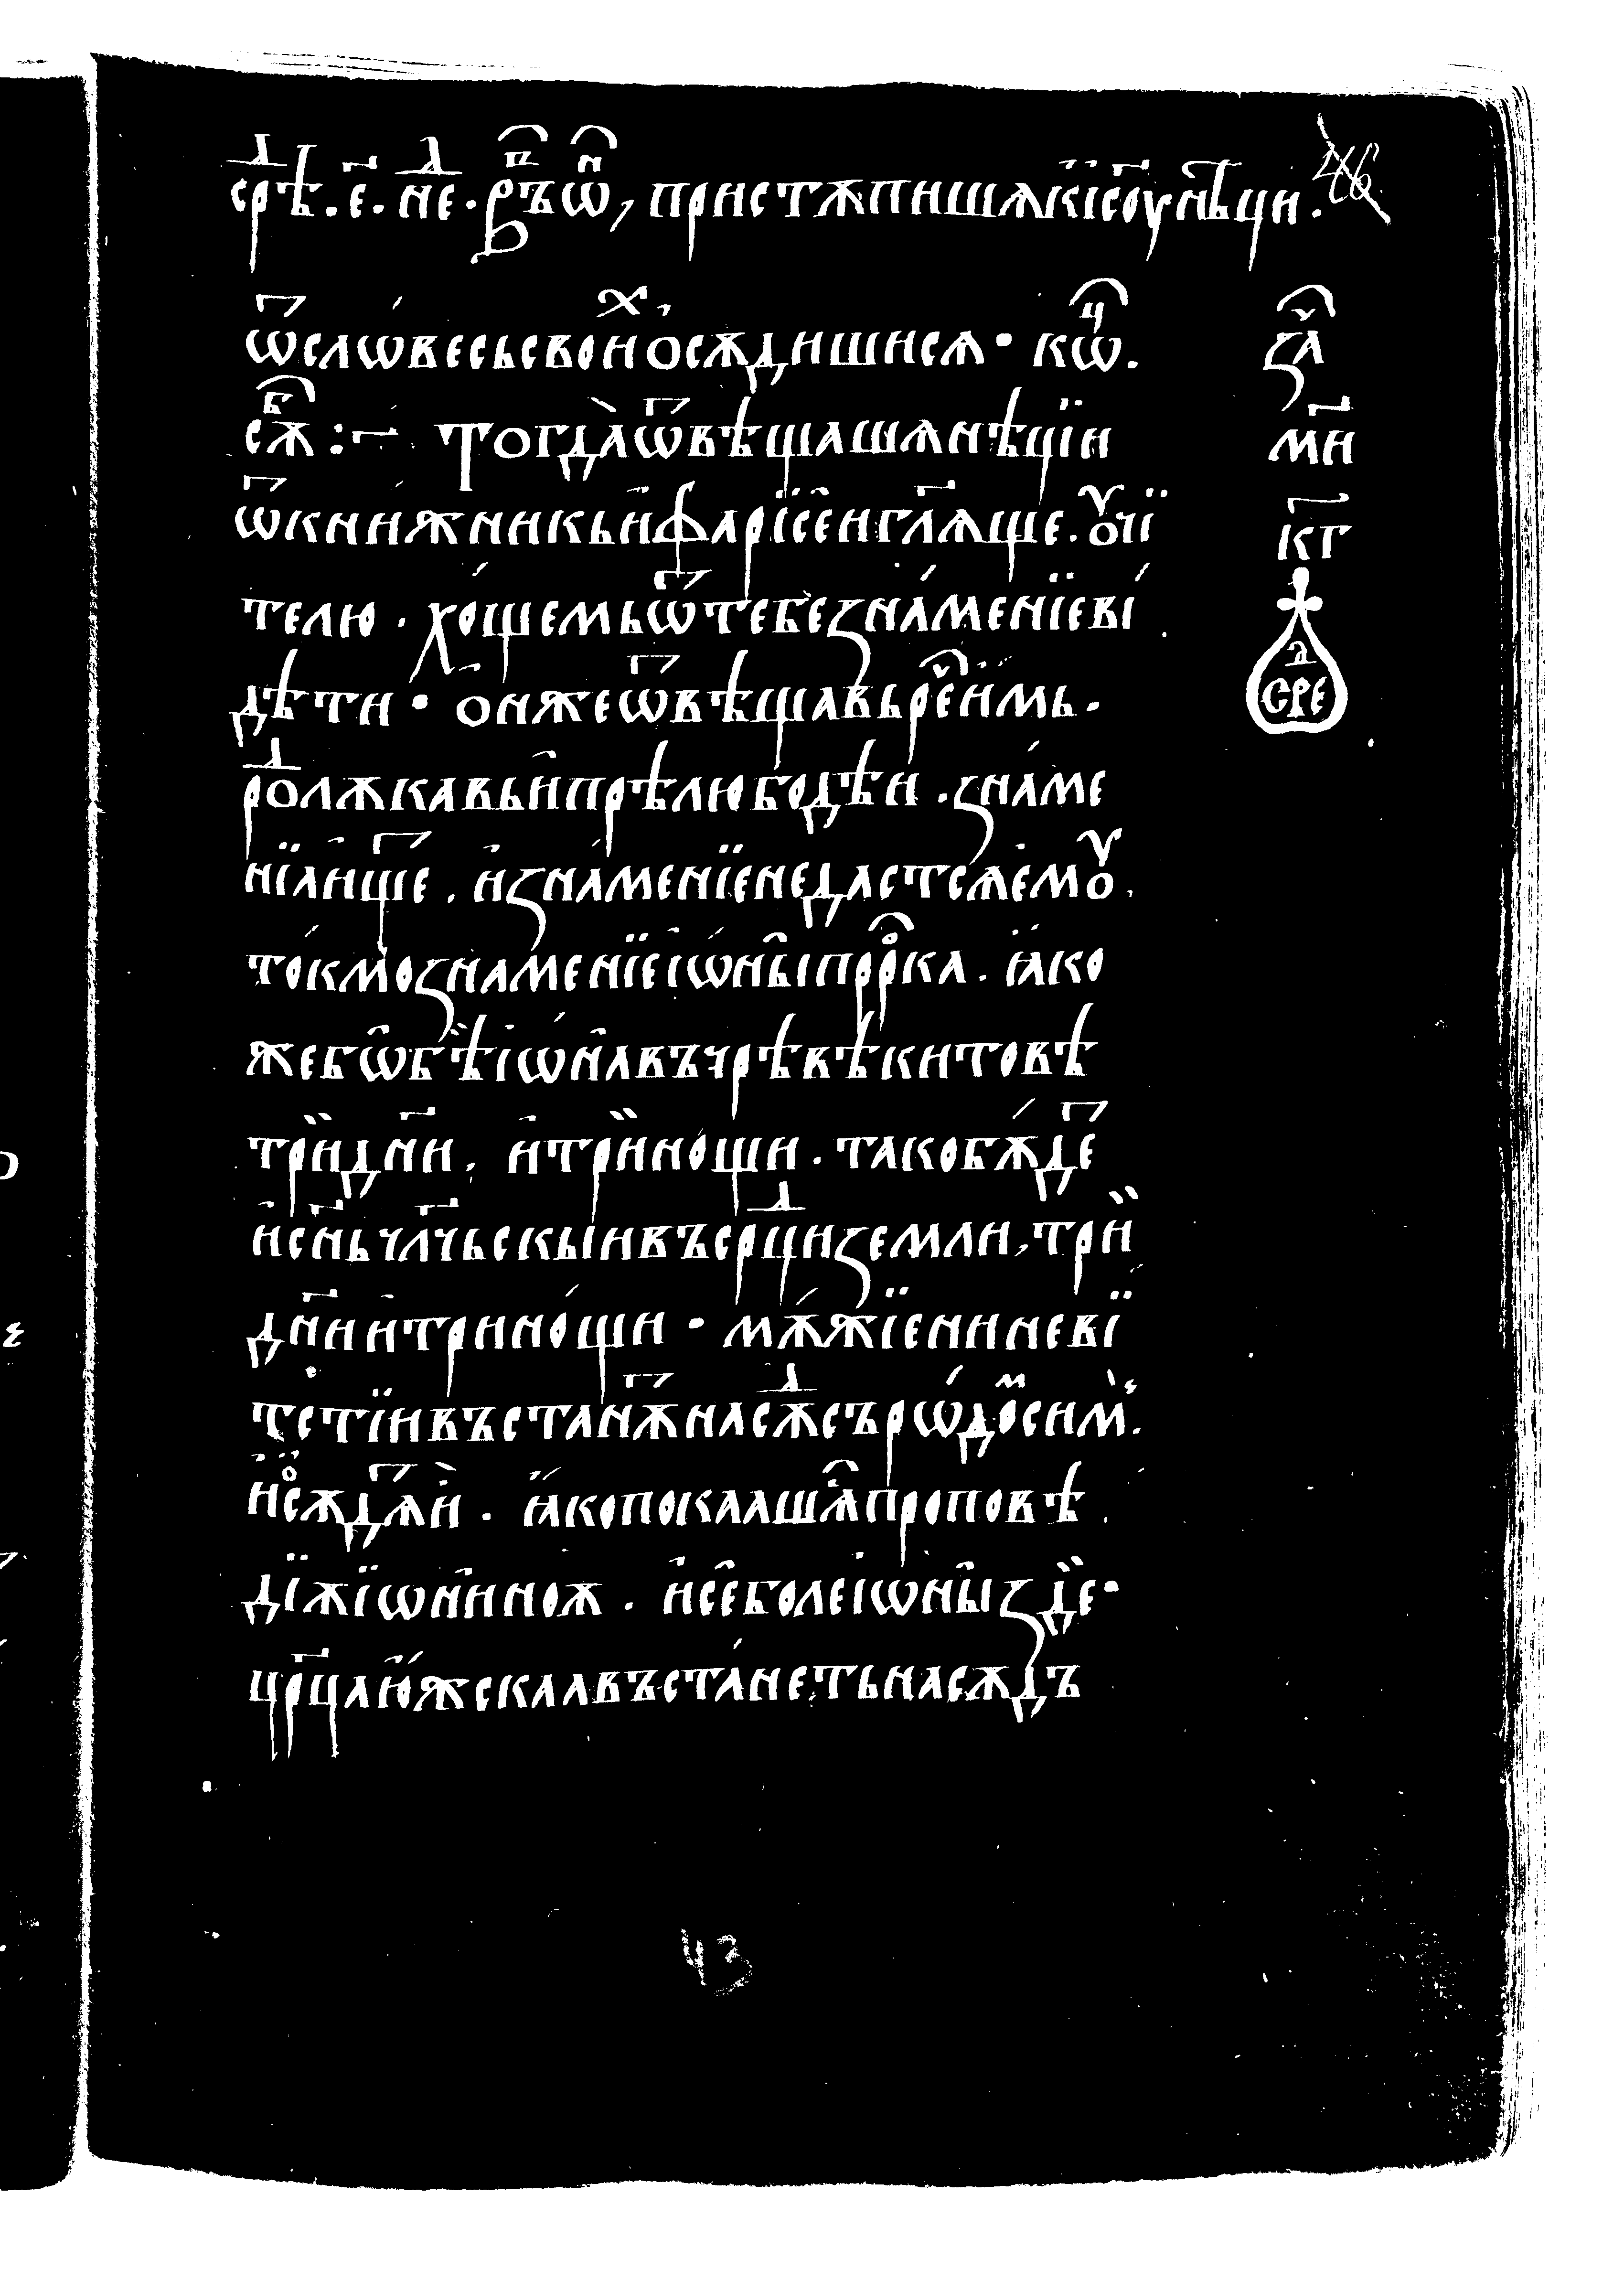 срѣⷣ · е҃ · неⷣ · рⷫъѡⷩ҇ , пристѫпишѧкїс҃оу нѣ҃ци · 46
ѿсловесьсвоиⷯ ѻсѫдишисѧ · кѡⷰ ·
сѫⷠ҇ :~ Тогда̀ѿвѣщашѧнѣцїи
ѿкни́жникьи҆фарїсе́игл҃ѧще · ꙋ҆чї
телю · хо́щемьѿтебезна́менїеві́
дѣти · ѻ҆нжеѿвѣщавьреⷱ҇и҆мь ·
роⷣлѫкавьи҆прѣлюбодѣи · зна́ме
нїаи҆щеⷮ · и҆зна́менїенедастсѧе҆мꙋ ,
то́кмо̀знаменїеі҆ѡ́ны̑іпрⷪ҇рка · ꙗ҆́ко
жебѡ̑бѣ̀і҆ѡ́навъчрѣвѣкитовѣ
трїидн҃и , и҆трїино́щи · такобѫ́деⷮ
и҆сн҃ьчл҃чьскыивъсрⷣциземли , трїи
дн҃ии҆трино́щи · мѫ́жїениневї
тстїивъстанѫⷮнасѫⷣсъро́дѡⷨсим̾ ·
и҆ѻ҆сѫдѧⷮи҆̀ · ꙗ҆́копокаашѧⷭ҇проповѣ
дїѫі҆ѡ́нинноѫ · и҆се́болеі҆ѡ́ны̑зде ·
цр҃цаю҆́жскаавъста́нетьнасѫдъ
заⷱ҇
м҃и
к҃г
среⷣ
43